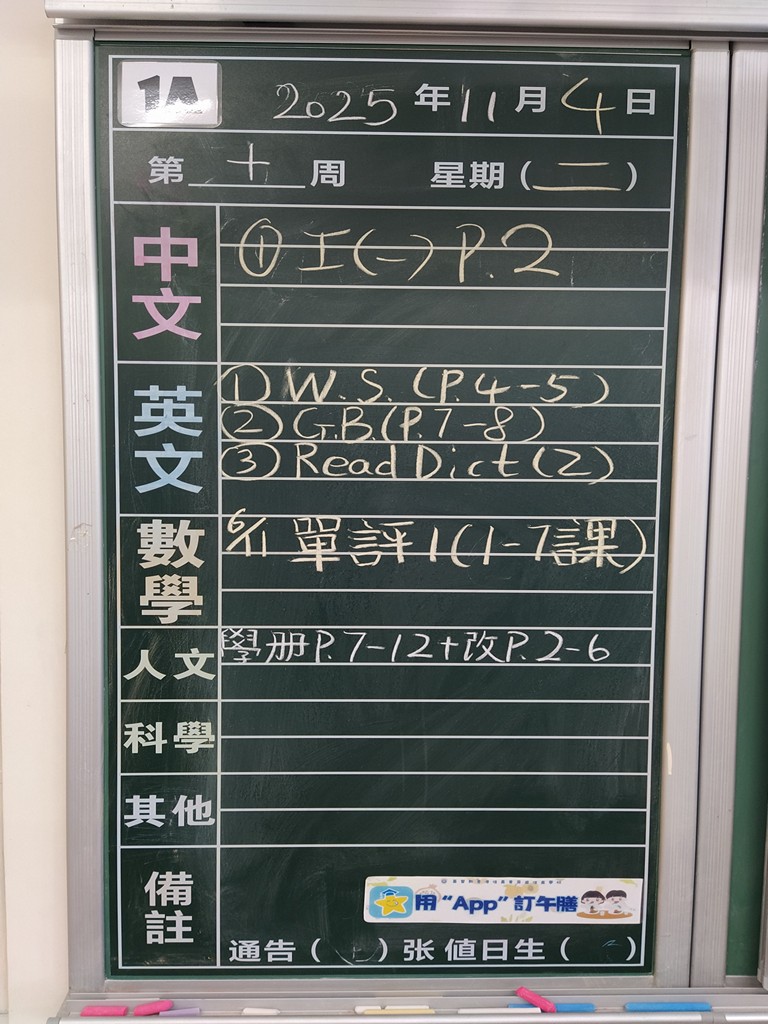 1A
2025年11月4日
第十周 星期(二)
中文
① 工(一) P.2
英文
① W.S. (P.4-5)
② G.B.(P.7-8)
③ Read Dict (2)
數學
6/11 單評1(1-7課)
人文
學册P.7-12+改P.2-6
科學
其他
備註
用 "App" 訂午膳
通告( )张 值日生( )